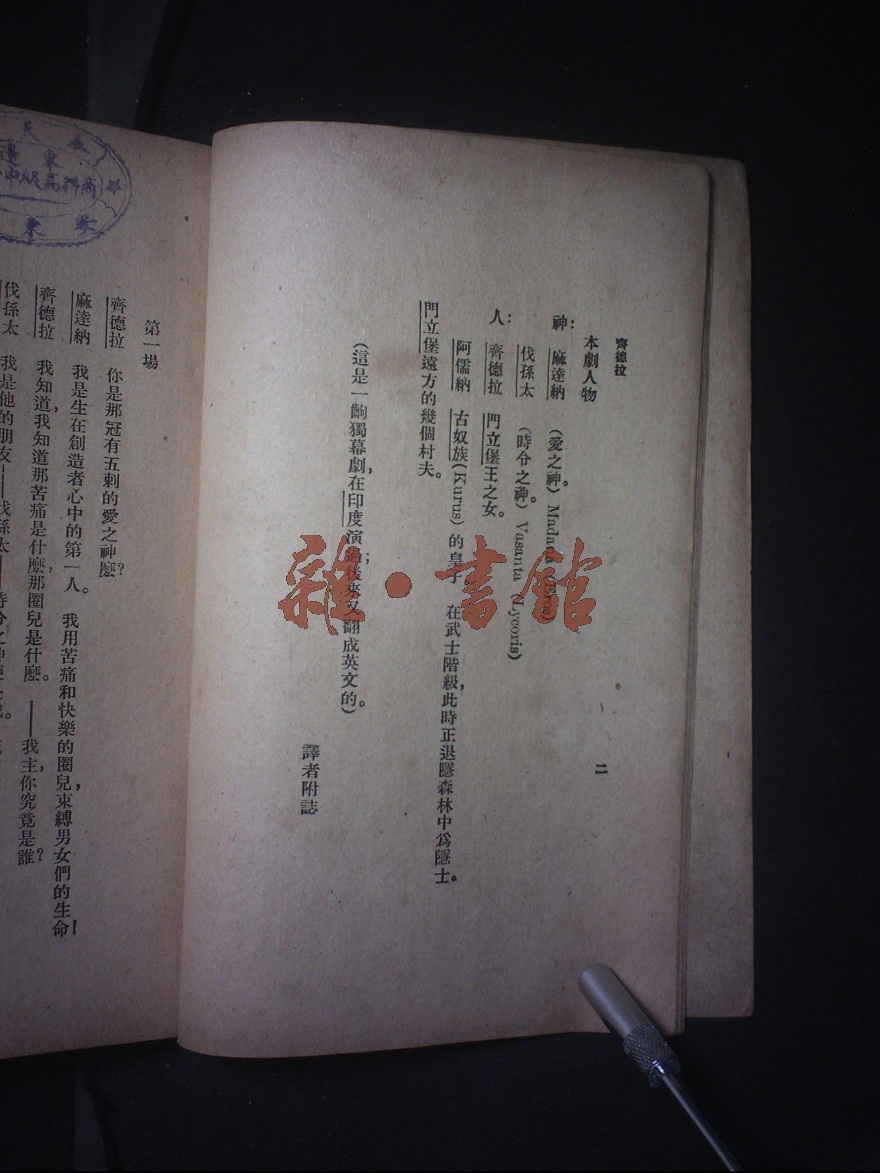 齊德拉
二
本劇人物
神：麻達納 (愛之神。) Madana (Eros)
伐孫太 (時令之神。) Vasanta (Lycoris)
人：齊德拉 門立堡王之女。
阿儒納 古奴族(Kurus)的皇子。在武士階級，此時正退隱森林中爲隱士。
門立堡遠方的幾個村夫。
(這是一齣獨幕劇，在印度演過；後來又翻成英文的。)
譯者附誌
雜·書館
第一場
齊德拉 你是那冠有五刺的愛之神麽？
麻達納 我是生在創造者心中的第一人。我用苦痛和快樂的圈兒束縛男女們的生命！
齊德拉 我知道，我知道那苦痛是什麽，那圈兒是什麽。——我主，你究竟是誰？
伐孫太 我是他的朋友——伐孫太——時令之神